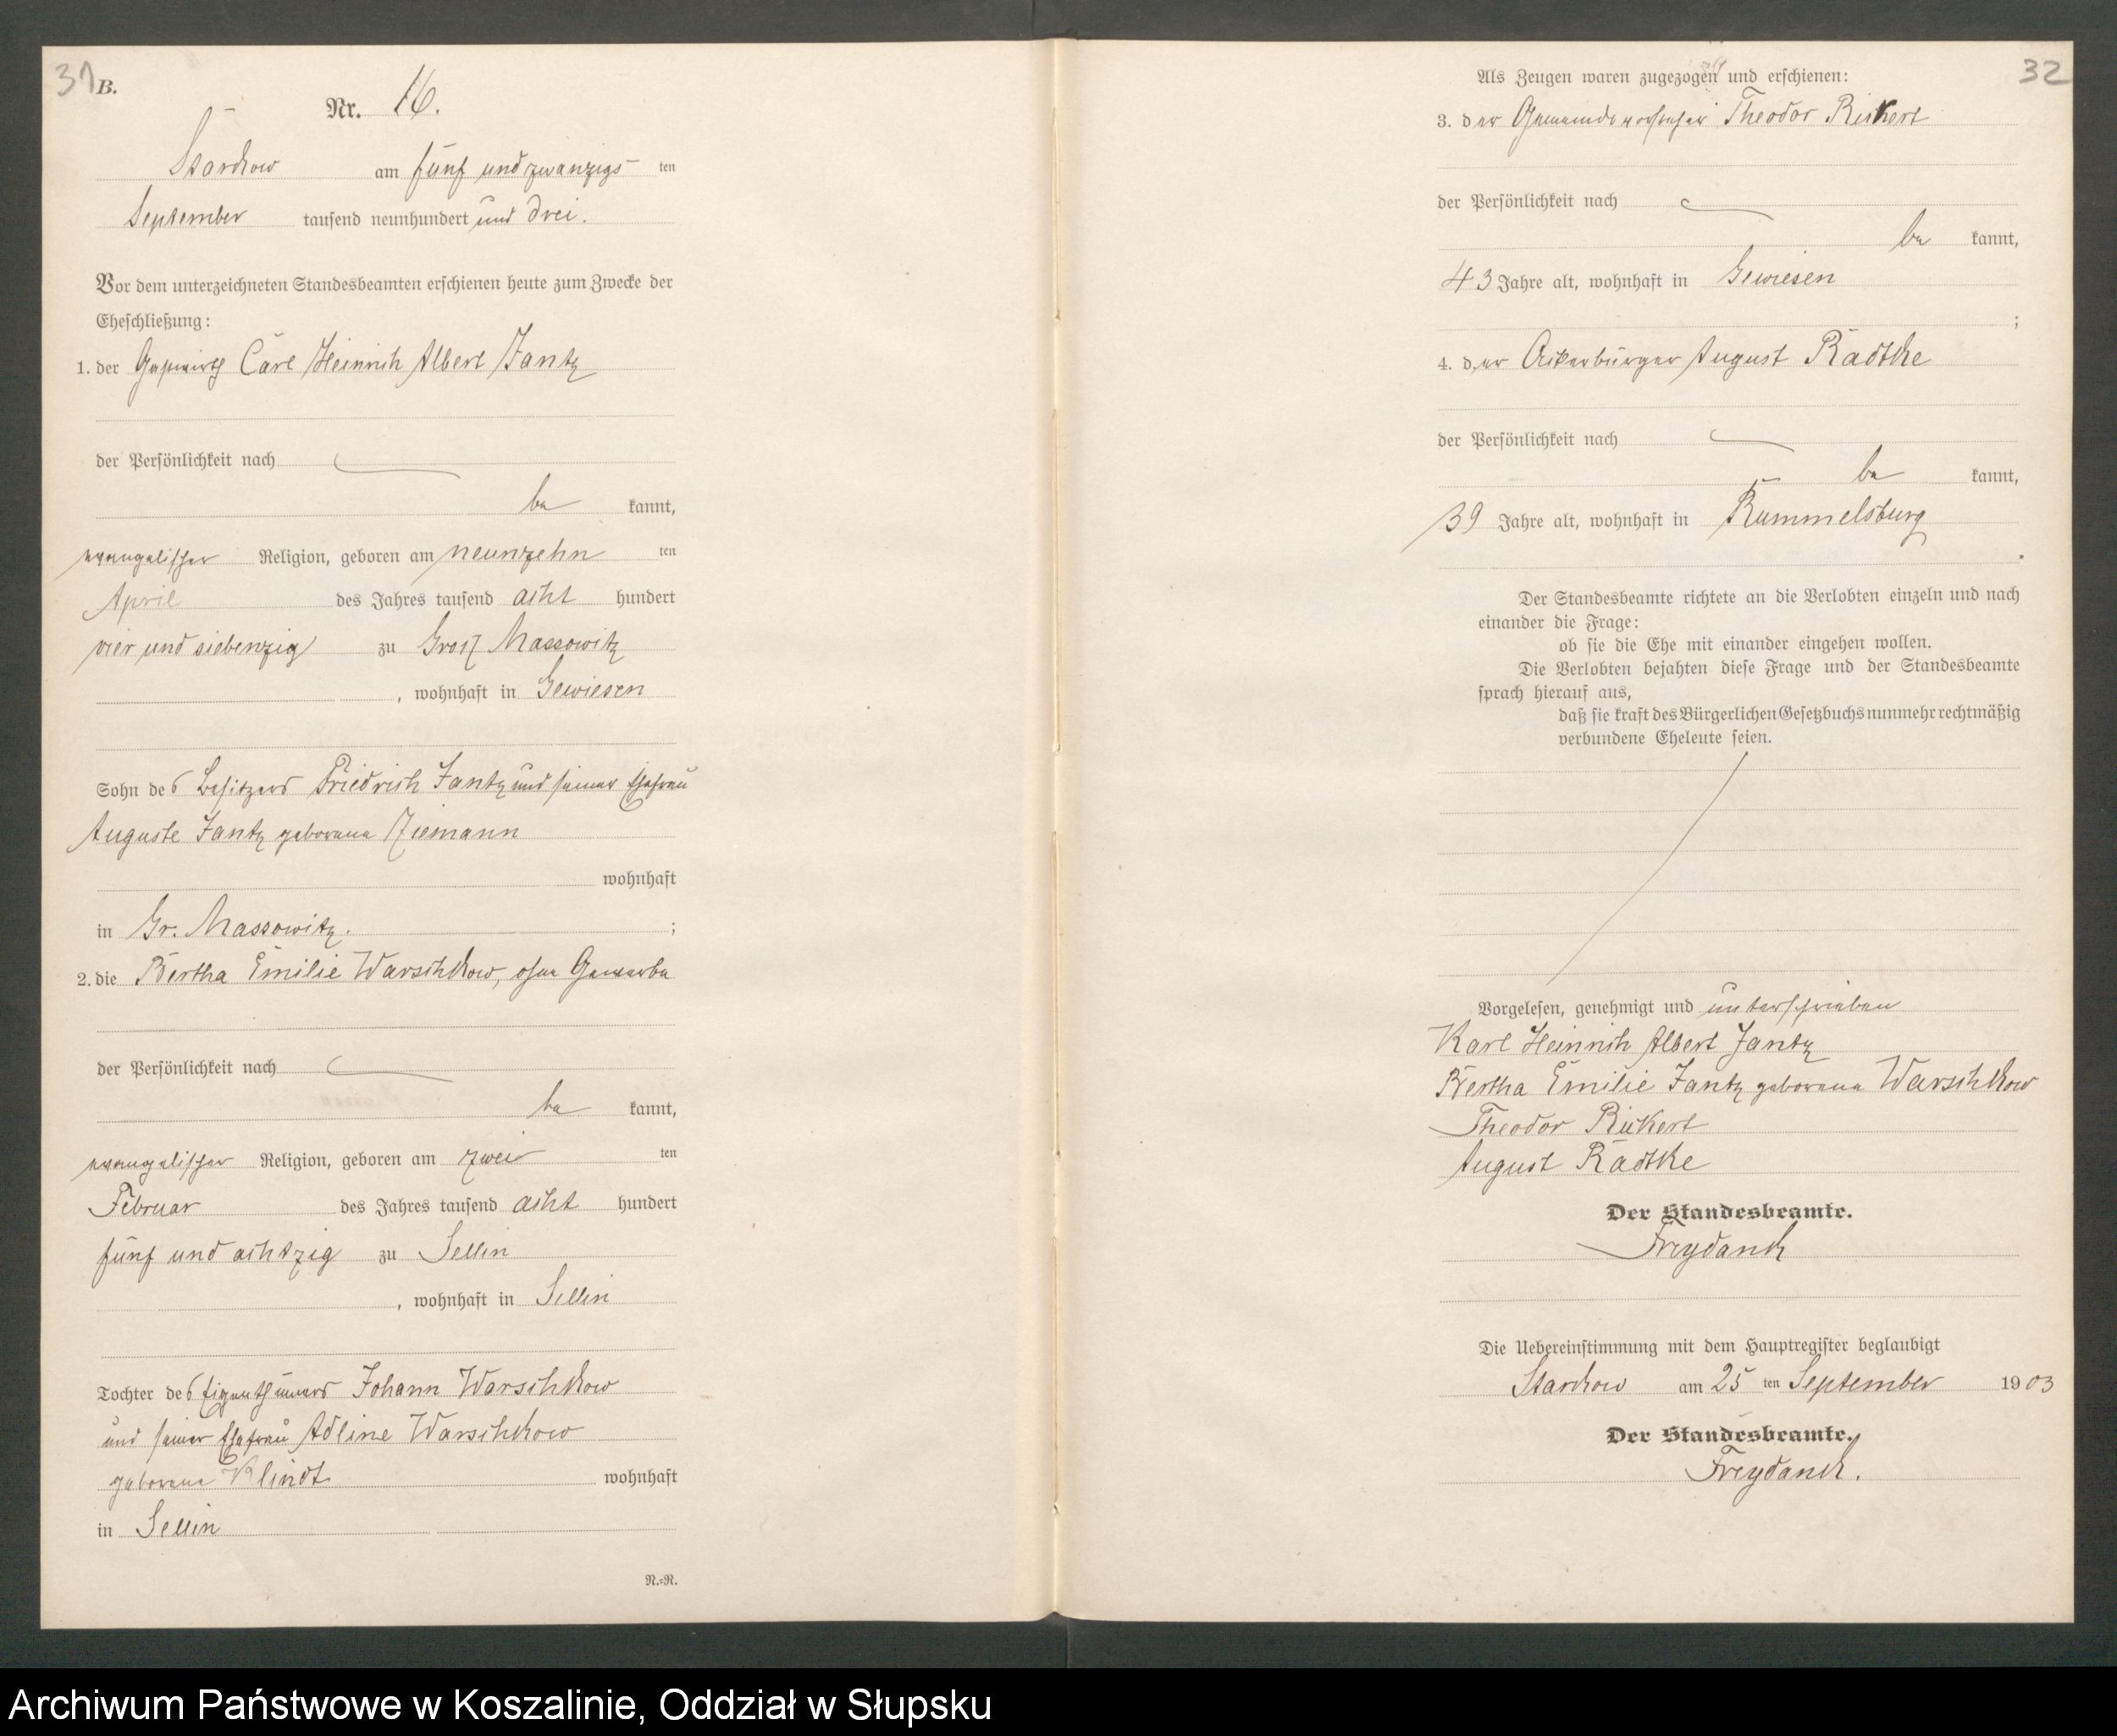 31
B.
Nr. 16.
Starckow am fünf und zwanzigs ten
September tausend neunhundert und drei.
Vor dem unterzeichneten Standesbeamten erschienen heute zum Zwecke der
Eheschließung:
1. der Gastwirth Carl Heinrich Albert Jantz
der Persönlichkeit nach
be kannt,
evangelischer Religion, geboren am neunzehn ten
April des Jahres tausend acht hundert
vier und siebenzig zu Gross Massowitz
, wohnhaft in Gewiesen
Sohn des Besitzers Friedrich Jantz und seiner Ehefrau
Auguste Jantz geborene Ziemann
wohnhaft
in Gr. Massowitz. ;
2. die Bertha Emilie Warschkow, ohne Gewerbe
der Persönlichkeit nach
be kannt,
evangelischer Religion, geboren am zwei ten
Februar des Jahres tausend acht hundert
fünf und achtzig zu Sellin
, wohnhaft in Sellin
Tochter des Eigenthümers Johann Warschkow
und seiner Ehefrau Adline Warschkow
geborene Klindt wohnhaft
in Sellin
N.=N.
32
Als Zeugen waren zugezogen und erschienen:
3. der Gemeindevorsteher Theodor Rickert
der Persönlichkeit nach
be kannt,
43 Jahre alt, wohnhaft in Gewiesen
;
4. der Ackerbürger August Radtke
der Persönlichkeit nach
be kannt,
39 Jahre alt, wohnhaft in Rummelsburg
.
Der Standesbeamte richtete an die Verlobten einzeln und nach
einander die Frage:
ob sie die Ehe mit einander eingehen wollen.
Die Verlobten bejahten diese Frage und der Standesbeamte
sprach hierauf aus,
daß sie kraft des Bürgerlichen Gesetzbuchs nunmehr rechtmäßig
verbundene Eheleute seien.
Vorgelesen, genehmigt und unterschrieben
Karl Heinrich Albert Jantz
Bertha Emilie Jantz geborene Warschkow
Theodor Rickert
August Radtke
Der Standesbeamte.
Freydanck
Die Uebereinstimmung mit dem Hauptregister beglaubigt
Starckow am 25 ten September 1903
Der Standesbeamte.
Freydanck.
Archiwum Państwowe w Koszalinie, Oddział w Słupsku